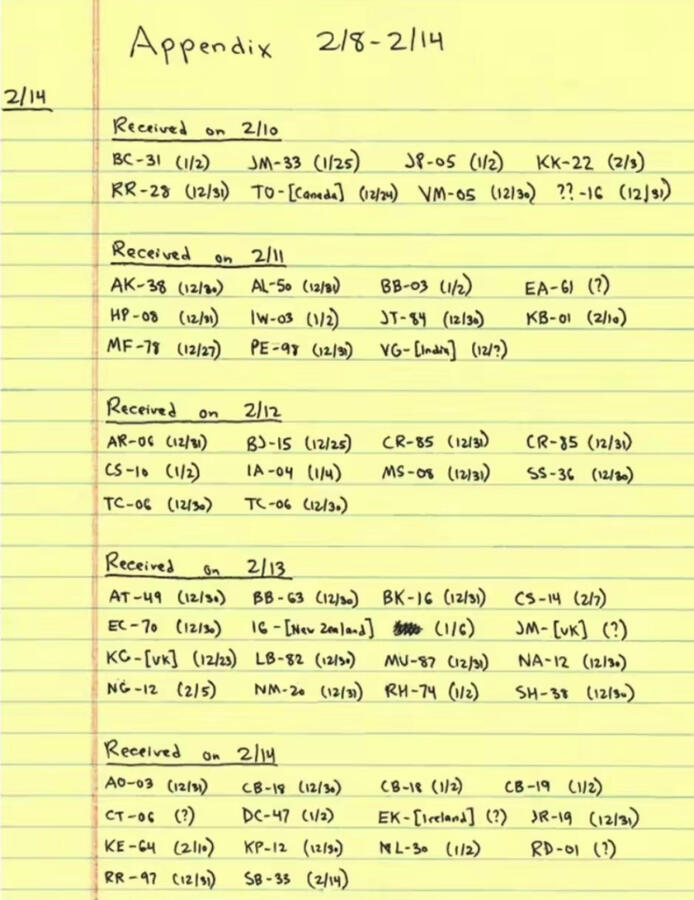 Appendix 2/8-2/14
2/14
Received on 2/10
BC-31 (1/2) JM-33 (1/25) JP-05 (1/2) KK-22 (2/3)
RR-28 (12/31) TO-[Canada] (12/24) VM-05 (12/30) ??-16 (12/31)
Received on 2/11
AK-38 (12/30) AL-50 (12/31) BB-03 (1/2) EA-61 (?)
HP-08 (12/31) IW-03 (1/2) JT-84 (12/30) KB-01 (2/10)
MF-78 (12/27) PE-98 (12/31) VG-[India] (12/?)
Received on 2/12
AR-06 (12/31) BJ-15 (12/25) CR-85 (12/31) CR-85 (12/31)
CS-10 (1/2) IA-04 (1/4) MS-08 (12/31) SS-36 (12/30)
TC-06 (12/30) TC-06 (12/30)
Received on 2/13
AT-49 (12/30) BB-63 (12/30) BK-16 (12/31) CS-14 (2/7)
EC-70 (12/30) IG-[New Zealand] (1/6) JM-[UK] (?)
KG-[UK] (12/23) LB-82 (12/30) MU-87 (12/31) NA-12 (12/30)
NG-12 (2/5) NM-20 (12/31) RH-74 (1/2) SH-38 (12/30)
Received on 2/14
AO-03 (12/31) CB-18 (12/30) CB-18 (1/2) CB-19 (1/2)
CT-06 (?) DC-47 (1/2) EK-[Ireland] (?) JR-19 (12/31)
KE-64 (2/10) KP-12 (12/30) ML-30 (1/2) RD-01 (?)
RR-97 (12/31) SB-33 (2/14)